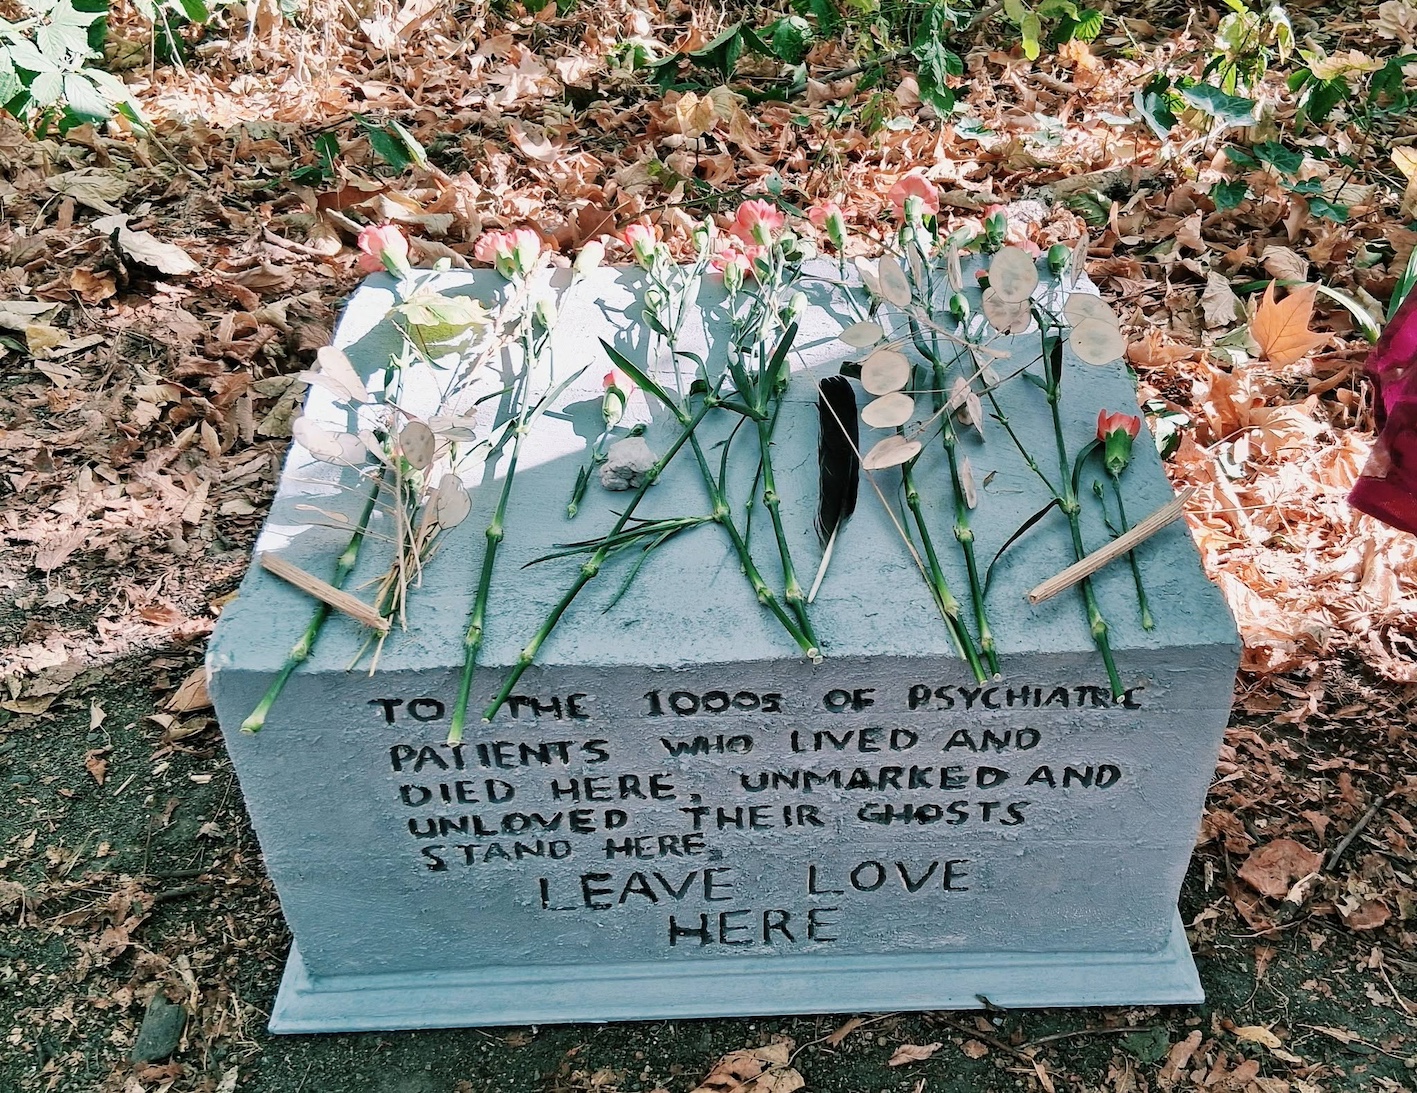 TO THE 1000s OF PSYCHIATRIC
PATIENTS WHO LIVED AND
DIED HERE, UNMARKED AND
UNLOVED THEIR GHOSTS
STAND HERE.
LEAVE LOVE
HERE